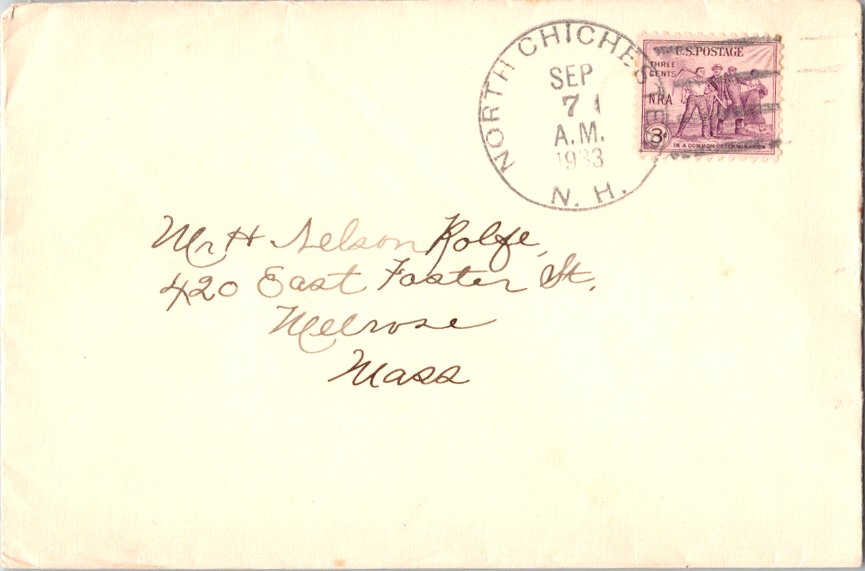 NORTH CHICHESTER
SEP
7
A.M.
1933
N. H.
U.S. POSTAGE
THREE
CENTS
NRA
3¢
IN A COMMON DETERMINATION
Mr H Nelson Rolfe,
420 East Foster St.
Melrose
Mass